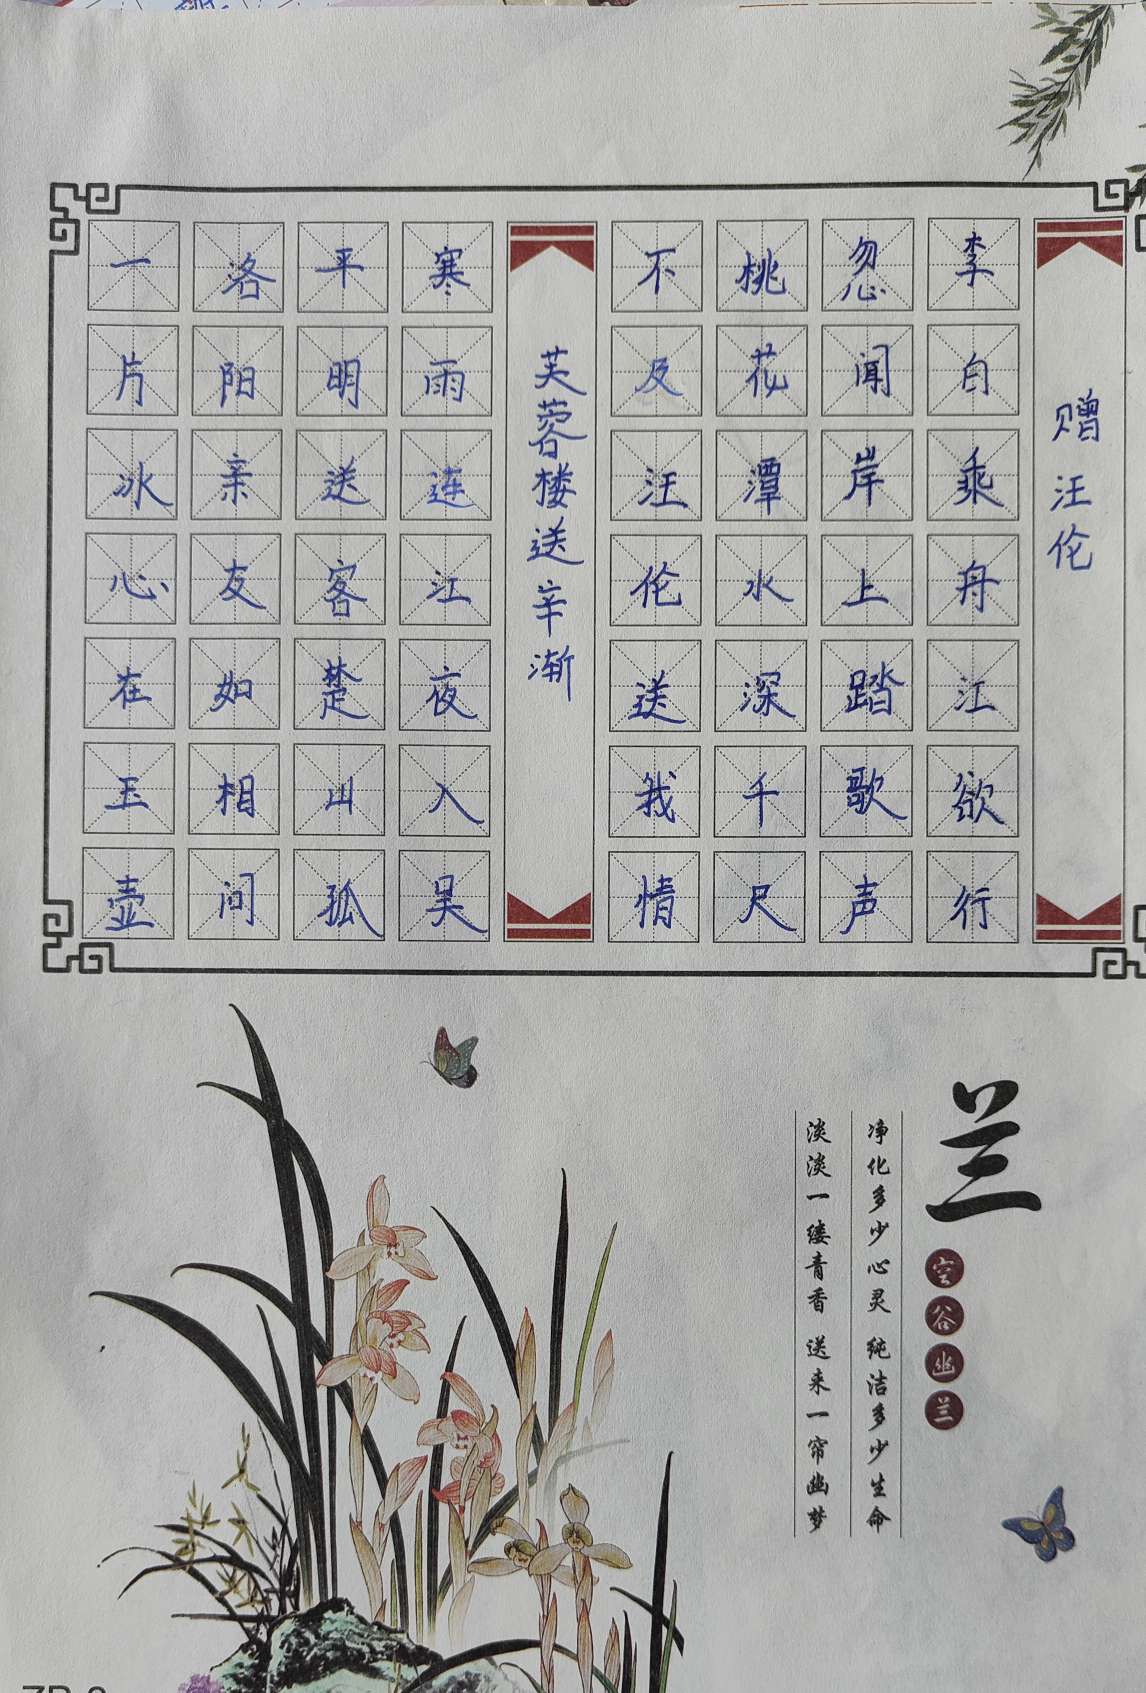 赠汪伦
李白乘舟江欲行
忽闻岸上踏歌声
桃花潭水深千尺
不及汪伦送我情
芙蓉楼送辛渐
寒雨连江夜入吴
平明送客楚山孤
洛阳亲友如相问
一片冰心在玉壶
兰
空谷幽兰
净化多少心灵 纯洁多少生命
淡淡一缕青香 送来一帘幽梦